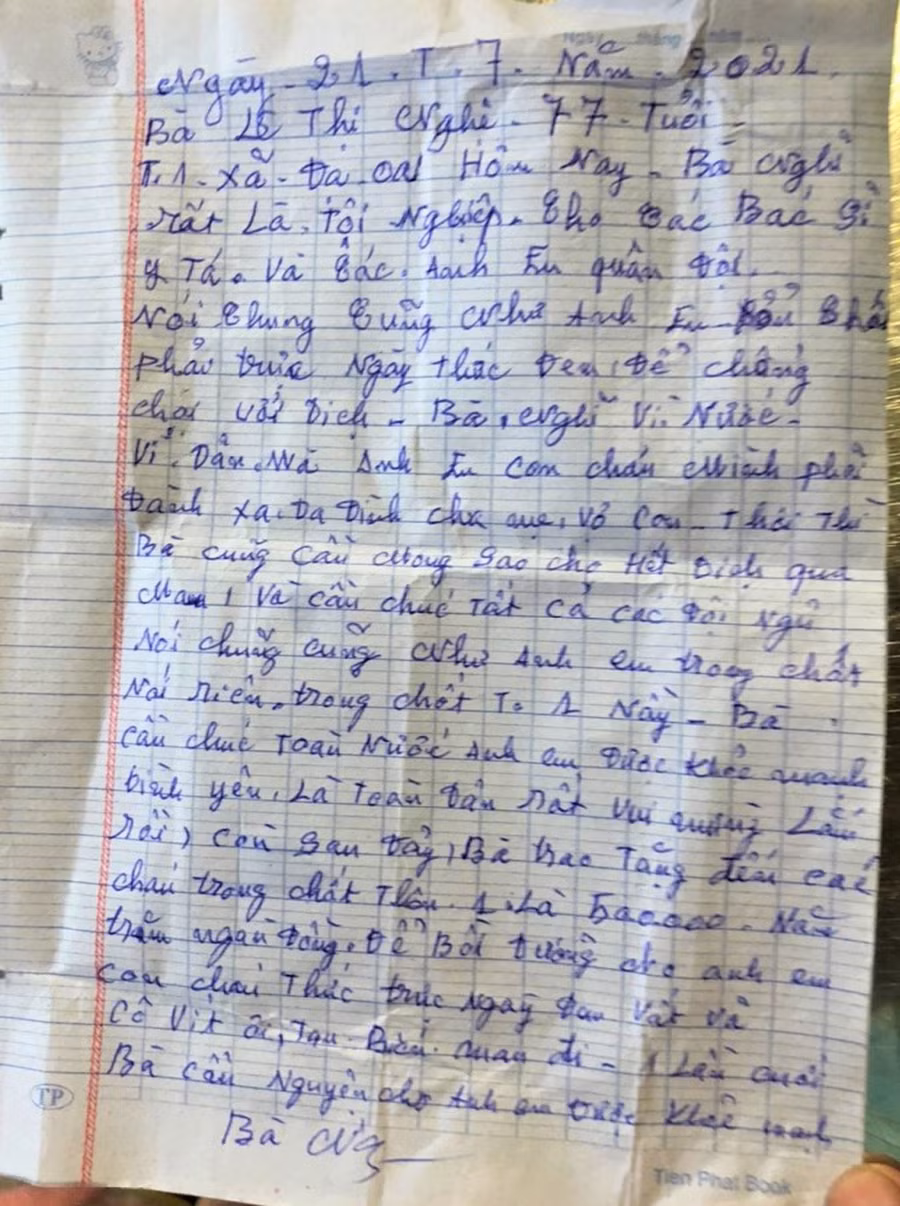 Ngày - 21 . T . 7 . Năm . 2021.
Bà Lê Thị Nghê - 77 - Tuổi -
T.1 - Xã - Đạ oai Hôm Nay - Bà Nghĩ
rất Là Tội Nghiệp. Cho Các Bác Sĩ
y Tá. Và Các. Anh Em quân Đội.
Nói Chung Cũng Như Anh Em
phải trực Ngày thức Đem, Để chống
chọi với Dịch - Bà, Nghĩ Vì Nước -
Vì Dân Mà Anh Em Con cháu Mình phải
Đành xa Da Đình cha mẹ, Vở Con - Thôi Thì
Bà cũng Cầu Mong Sao cho Hết Dịch qua
Mau, Và cầu chúc Tất cả các Đội Ngũ
Nói chung cũng Như Anh em trong chốt
Nói riên. trong chốt T. 1 Này - Bà
cầu chúc Toàn Nước Anh em Được khỏe manh
bình yên, Là Toàn Dân rất vui mừng Lắm
rồi, Còn Sau Đây, Bà trao Tặng đến các
cháu trong chốt Thôn. 1. Là 500000 - Năm
trăm ngàn Đồng. Để Bồi Dưỡng cho anh em
con cháu Thức trực Ngày Đem Vất vả
Cô Vít ơi, Tan Biến mau đi - 1 Lần cuối
Bà cầu Nguyện cho Anh em Được khỏe manh
Bà
TP
Tien Phat Book